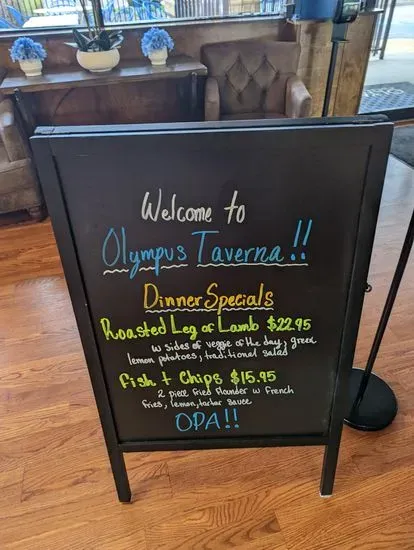 Welcome to
Olympus Taverna!!
Dinner Specials
Roasted Leg of Lamb $22.95
w sides of veggie of the day, greek
lemon potatoes, traditional salad
Fish + Chips $15.95
2 piece fried flounder w French
fries, lemon, tartar sauce
OPA!!